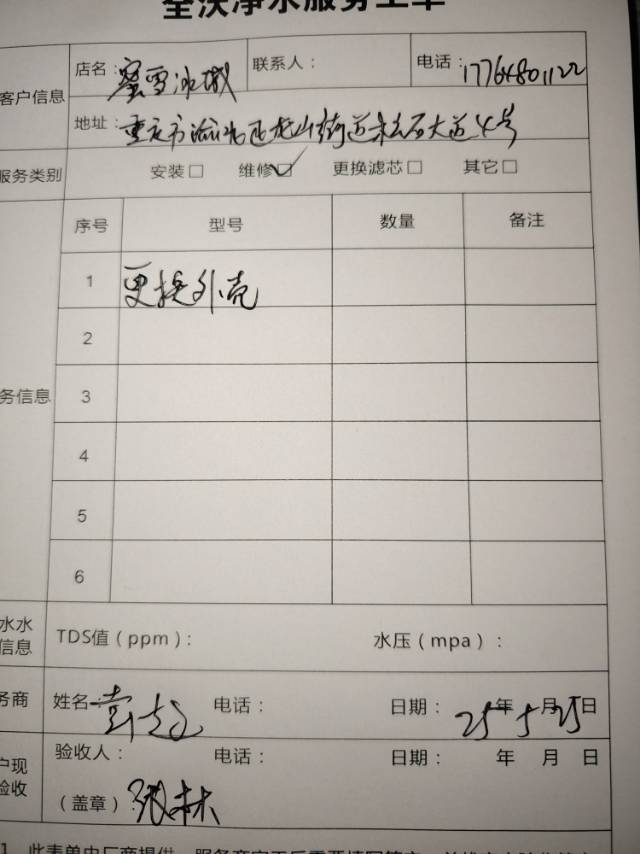 全沃净水服务工单
客户信息 店名：蜜雪冰城 联系人： 电话：17764801122
地址：重庆市渝北区龙山街道松石大道4号
服务类别 安装□ 维修☑ 更换滤芯□ 其它□
序号 型号 数量 备注
1 更换外壳
2
务信息 3
4
5
6
水水
信息 TDS值（ppm）： 水压（mpa）：
务商 姓名： 电话： 日期：25年5月25日
户现 验收人： 电话： 日期： 年 月 日
验收 （盖章）张林
1、此表单由厂商提供